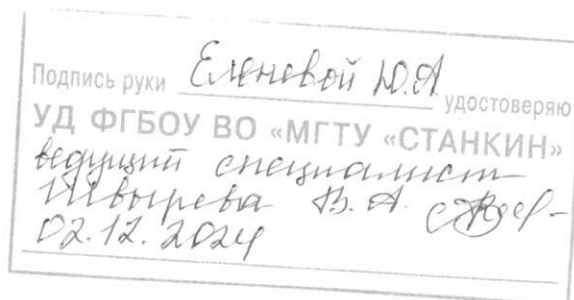 Подпись руки Еленевой Ю.А. удостоверяю
УД ФГБОУ ВО «МГТУ «СТАНКИН»
ведущий специалист
Швырева В.А.
02.12.2024